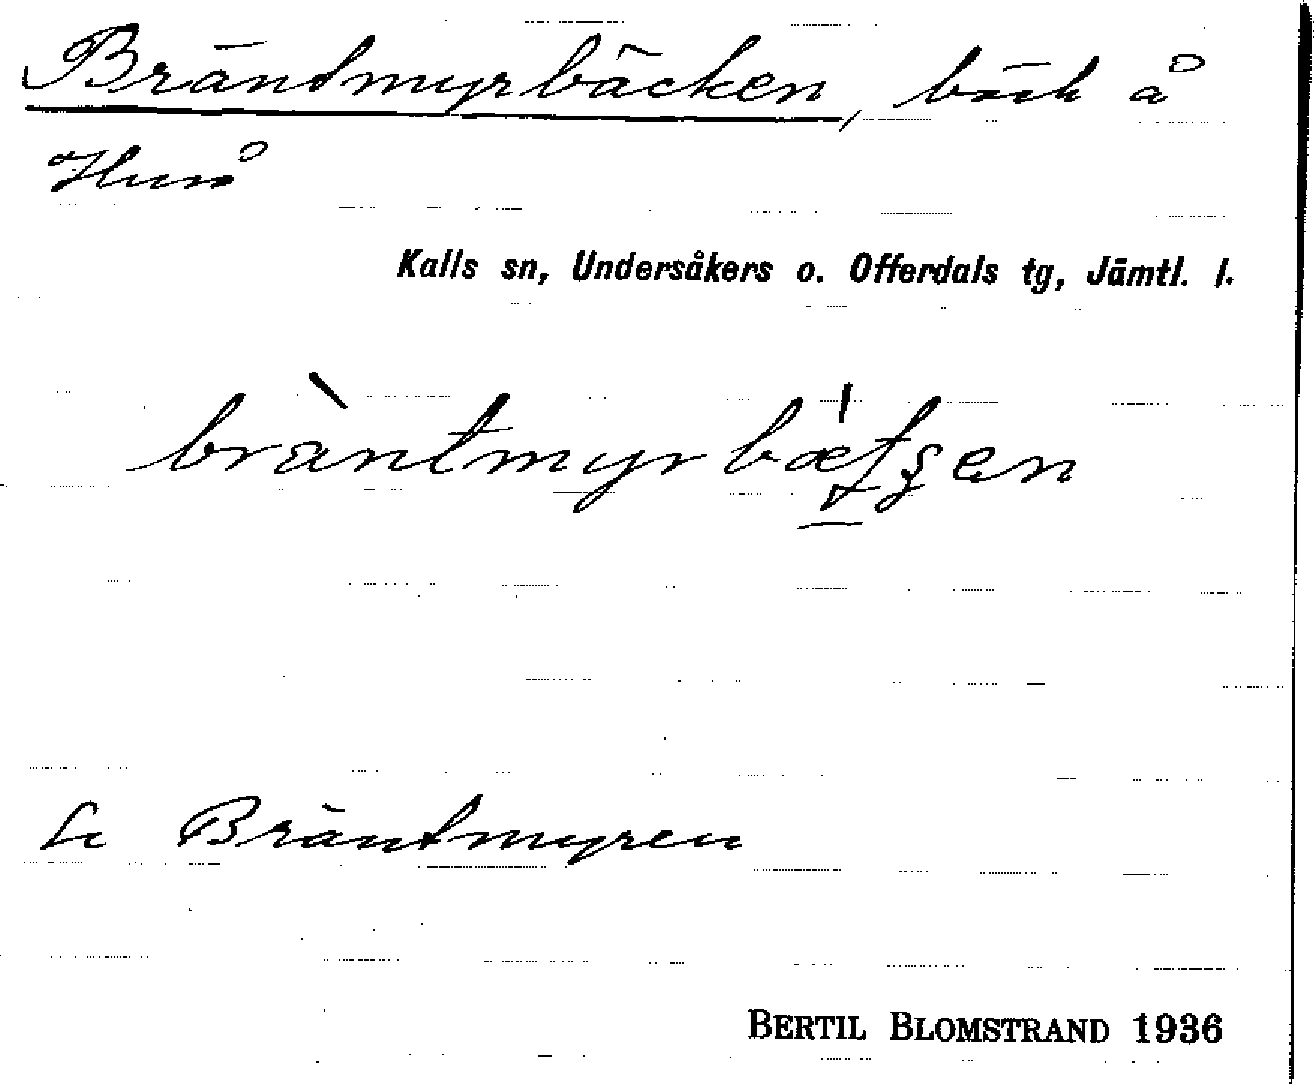 Bräntmyrbäcken, bäck å
Huså
Kalls sn, Undersåkers o. Offerdals tg, Jämtl. l.
Se Bräntmyren
BERTIL BLOMSTRAND 1936